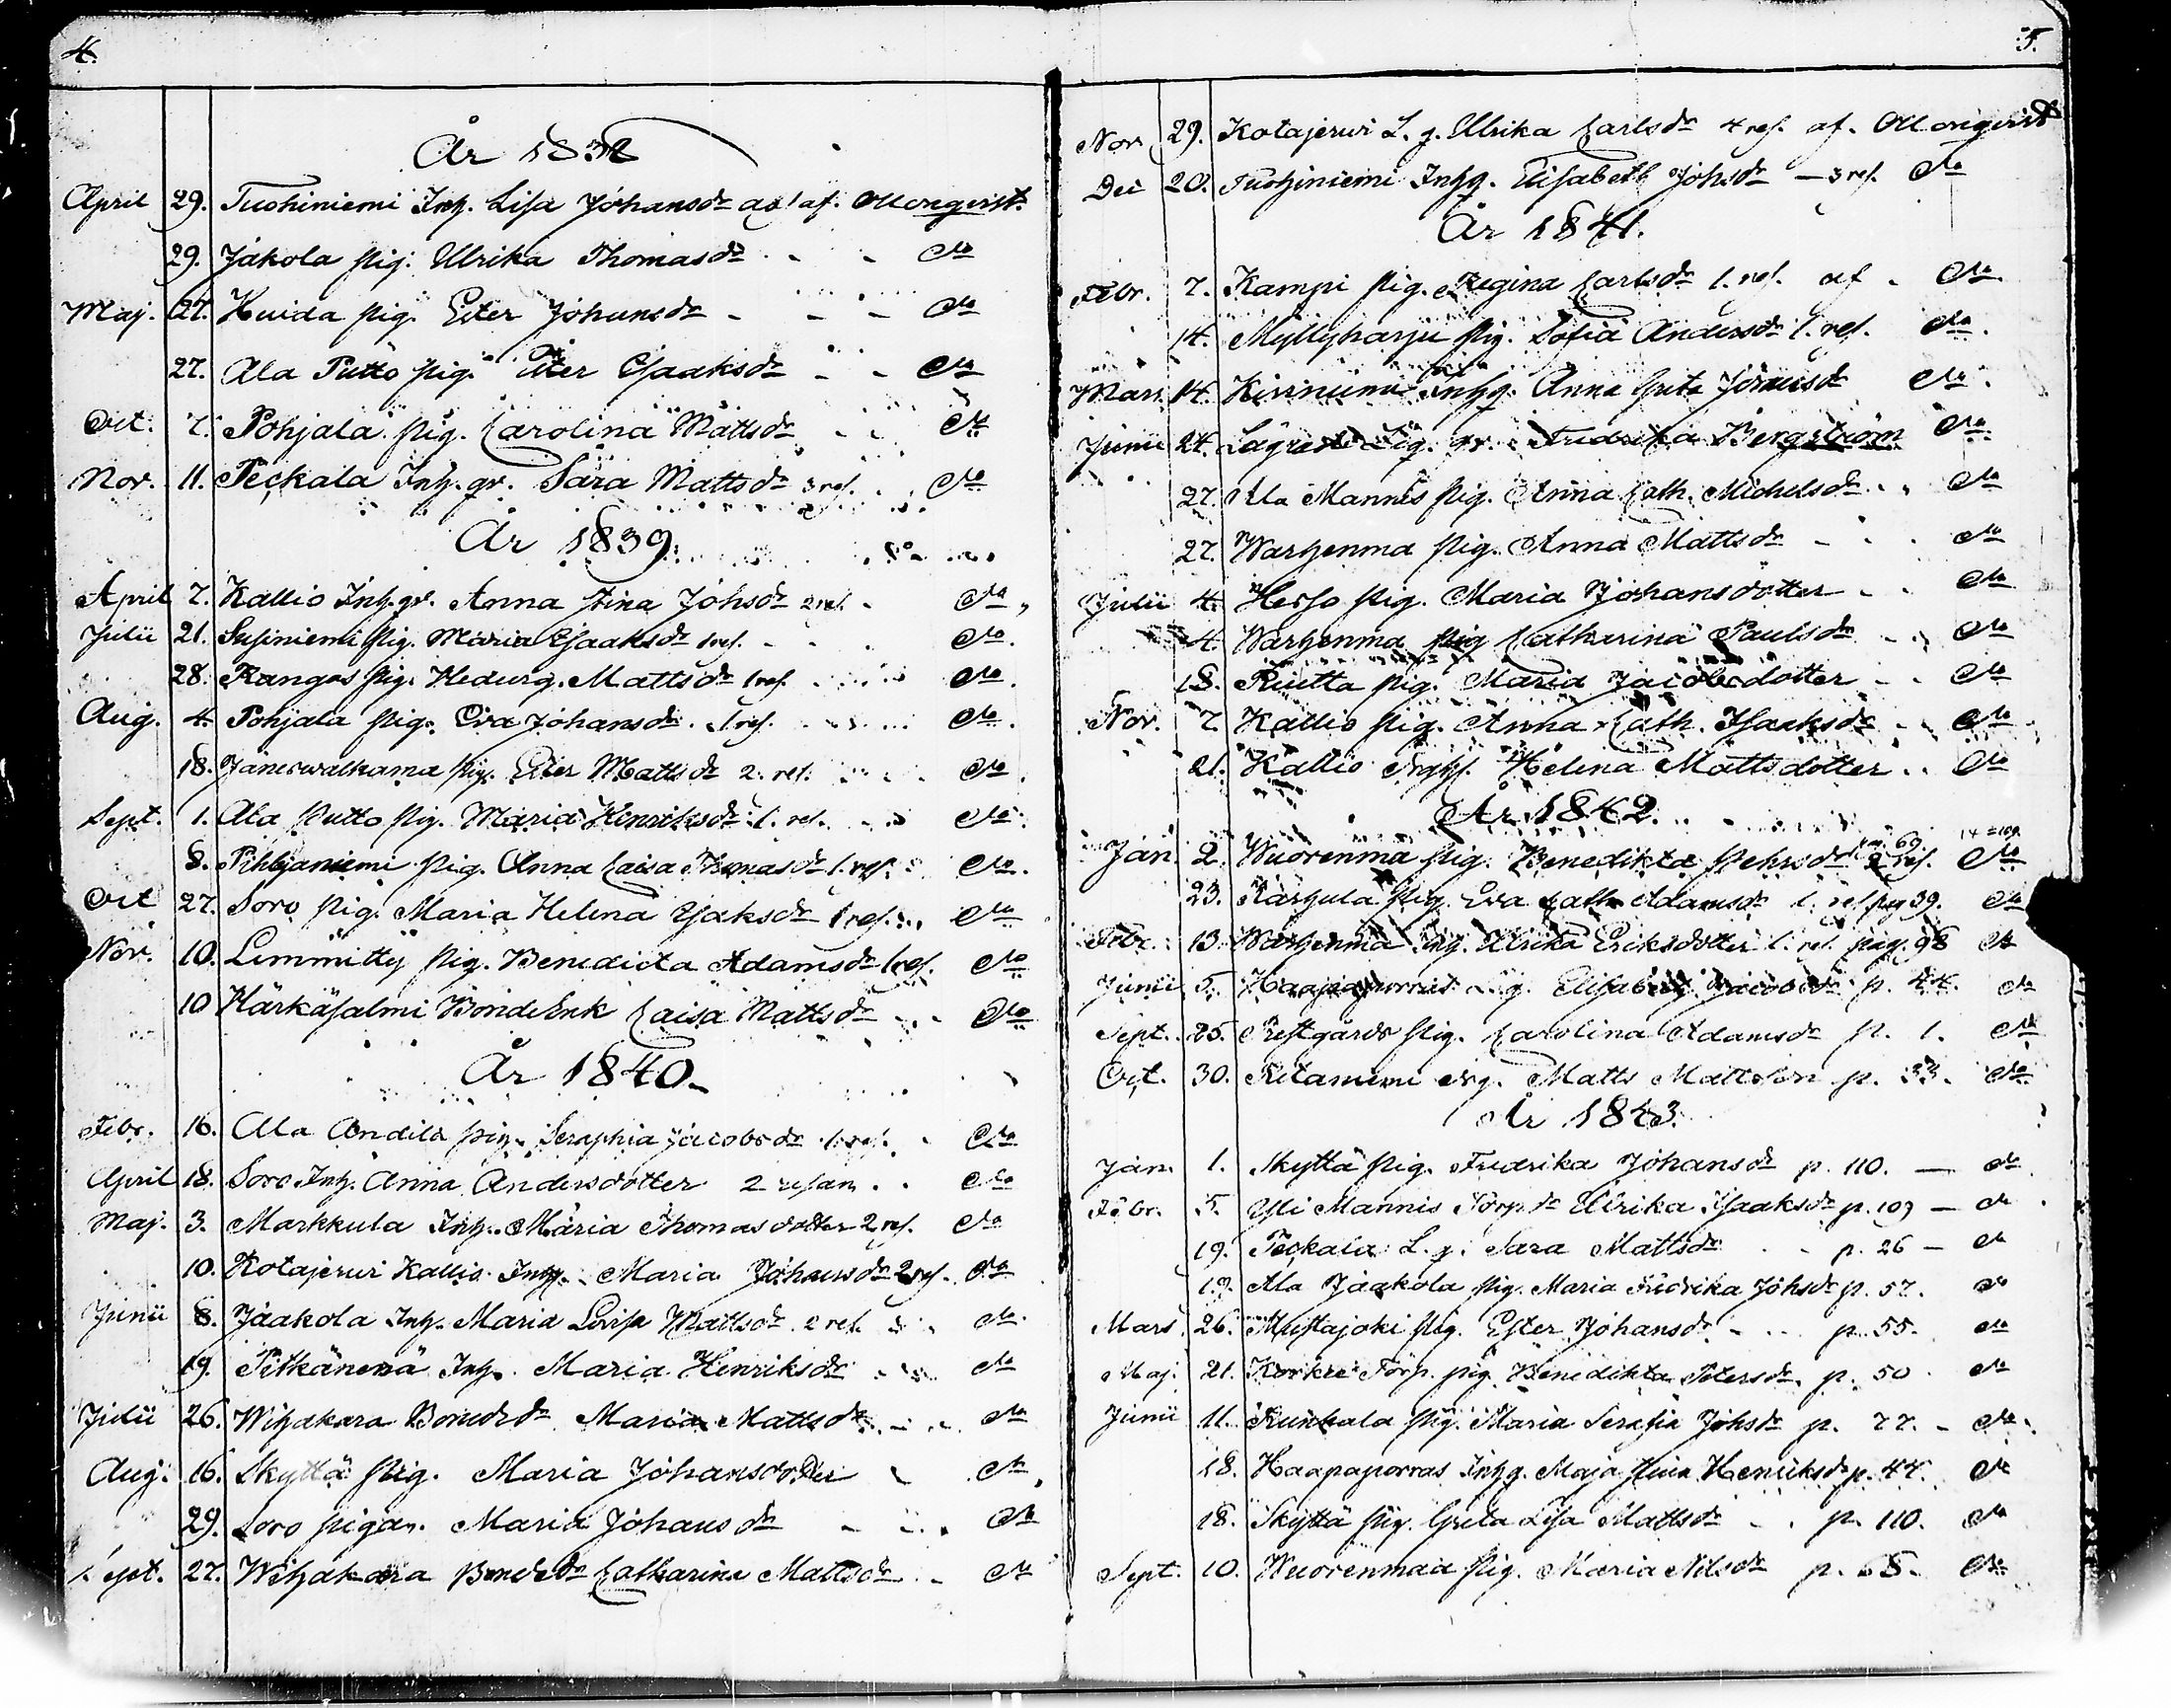 4.
År 1838
April 29. Tuohiniemi Inh. Lisa Johansdr af Monqvist.
29. Jakola pig. Ulrika Thomasdr - - do
Maj. 27. Huida pig. Ester Johansdr - - - do
27. Ala Putto pig. Isaaksdr - - do
Oct. 7. Pohjala pig. Carolina Mattsdr do
Nov. 11. Peckala Inh. gv. Sara Mattsdr 3 res. do
År 1839.
April 7. Kallio Inh. gv. Anna Stina Johsdr 2 res. do
Julii 21. Susiniemi pig. Maria Isaaksdr 1 res. do
28. Kangas pig. Hedvig. Mattsdr 1 res. do
Aug. 4 Pohjala pig. Eva Johansdr. 1 res. do
18. pig. Ester Mattsdr 2. res. do
Sept. 1. Ala Putto pig. Maria Henriksdr 1. res. do
8. Pihlajaniemi pig. Anna Caisa Thomasdr 1. res. do
Oct 27. Soro pig. Maria Helena Isaksdr 1 res. do
Nov. 10. Limmitty pig. Benedicta Adamsdr 1 res. do
10 Härkäsalmi Bondeenk Caisa Mattsdr - - do
År 1840.
Febr. 16. Ala Andila pig. Seraphia Jacobsdr 1. res. do
April 18. Soro Inh. Anna Andersdotter 2 resan. do
Maj. 3. Markkula Inh. Maria Thomasdotter 2 res. do
10. Kotajerwi Kallio Inh. Maria Johansdr 2 res. do
Junii 8. Jaakola Inh. Maria Lovisa Mattsdr. 2 res. do
19. Pitkänenä Inh. Maria Henriksdr do
Julii 26. Wihakara Bondedr Maria Mattsdr. do
Aug. 16. Skyttä pig. Maria Johansdotter do
29. Soro pigan. Maria Johansdr do
Sept. 27. Wihakara Bondedr Catharina Mattsdr - do
5.
Nov. 29. Kotajerwi L. g. Ulrika Carlsdr 4 res. af. Monqvist
Dec 20. Tuohiniemi Inhg. Elisabeth Johsdr - 3 res. do
År 1841.
Febr. 7. Kampi pig. Regina Carlsdr 1. res. af. do
14. Myllyharju pig. Sofia Andersdr 1. res. do
Mars. 14. Inhg. Anna Greta do
Junii 24. Fredrika Bergström do
27. Ala Mannis pig. Anna Cath. Michelsdr. do
27. Warhenma pig. Anna Mattsdr - do
Julii 4. pig. Maria Johansdotter do
4. Warhenma pig Catharina Paulsdr do
18. Ruetta pig. Maria Jacobsdotter do
Nov. 7. Kallio pig. Anna Cath. Isaaksdr do
21. Kallio Inhs. Helena Mattsdotter.. do
År 1842.
Jan. 2. Wuorenma pig. Benedikta Pehrsdr pag. 69. 2 res. do
23. Karhula pig. Eva Cath Adamsdr 1. res pag 39. do
Febr. 13. Warhenma Inh. Ulrika Eriksdotter 1. res. pag. 98 do
Junii 5. Haapaporras g. Elisabeth Jacobsdr p. 44. do
Sept. 25. Prestgårds pig. Carolina Adamsdr p. 1. do
Oct. 30. Matts Mattsson p. 33. do
År 1843.
Jan. 1. Skyttä pig. Fredrika Johansdr p. 110. — do
Febr. 5. Yli Mannis Torp.dr Ulrika Isaaksdr p. 109 — do
19. Peckala L. g. Sara Mattsdr p. 26 — do
19. Ala Jaakola pig. Maria Fredrika Johsdr p. 57. do
Mars. 26. Mustajoki pig. Ester Johansdr - p. 55. do
Maj. 21. Torp. pig. Benedikta Petersdr. p. 50. do
Junii 11. Kunkala pig. Maria Serafia Johsdr p. 77. - do
18. Haapaporras Inhg. Maja Stina Henriksdr p. 44. do
18. Skyttä pig. Greta Lisa Mattsdr p. 110. do
Sept. 10. Wuorenmaa pig. Maria Nilsdr p. 68. do